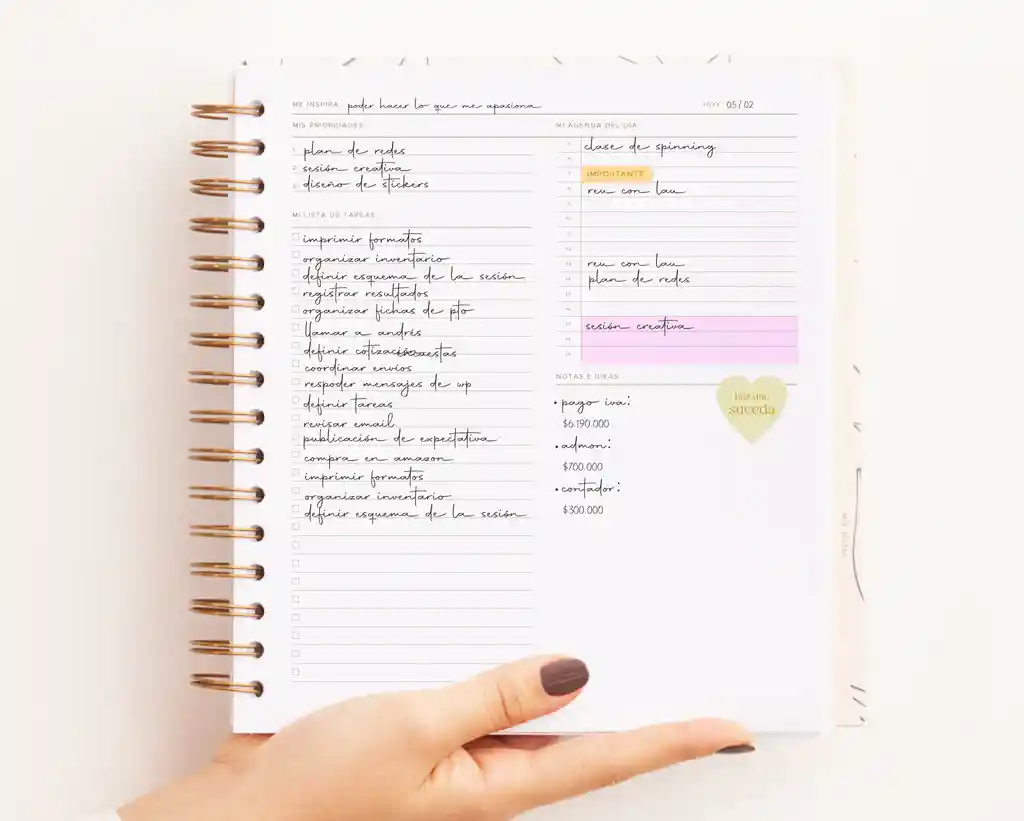 ME INSPIRA poder hacer lo que me apasiona
HOY 05/02
MIS PRIORIDADES
1 plan de redes
2 sesión creativa
3 diseño de stickers
MI LISTA DE TAREAS
imprimir formatos
organizar inventario
definir esquema de la sesión
registrar resultados
organizar fichas de pto
llamar a andrés
definir cotizaciones
coordinar envíos
respoder mensajes de wp
definir tareas
revisar email
publicación de expectativa
compra en amazon
imprimir formatos
organizar inventario
definir esquema de la sesión
MI AGENDA DEL DÍA
5 clase de spinning
6
7 IMPORTANTE
8 reu con lau
9
10
11
12
13 reu con lau
14 plan de redes
15
16
17 sesión creativa
18
19
NOTAS E IDEAS
• pago iva:
$6.190.000
• admon:
$700.000
• contador:
$300.000
haz que
suceda